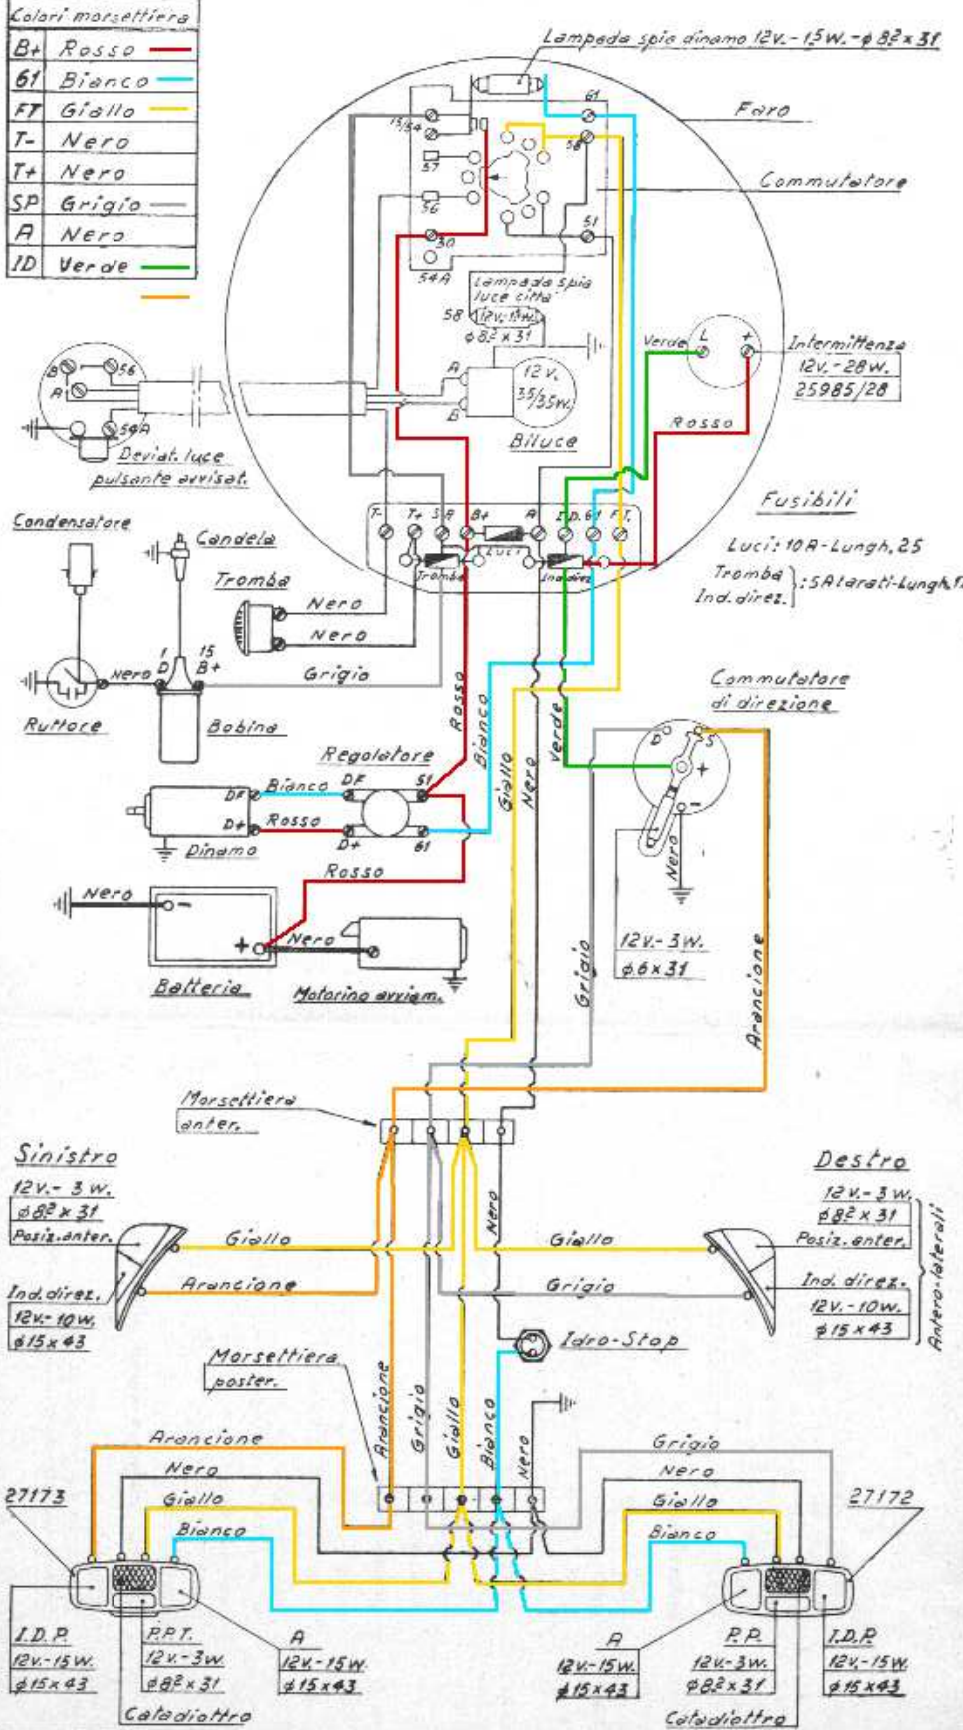 Colori morsettiera
B+ Rosso
61 Bianco
FT Giallo
T- Nero
T+ Nero
SP Grigio
A Nero
ID Verde
Lampada spia dinamo 12V.-1,5W.-φ8,2x31
Faro
Commutatore
61
15/54
58
57
56
30
51
54A
Lampada spia
luce città
58
φ8,2x31
A
B
12V.
35/35W.
Biluce
Verde
L
+
Intermittenza
12V.-28W.
25985/28
Rosso
B
56
A
54A
Deviat. luce
pulsante avvisat.
Fusibili
Luci: 10A-Lungh. 25
Tromba
Ind. direz.
T-
T+
B+
A
I.D.
61
F.T.
Luci
Tromba
Ind. direz.
Condensatore
Candela
Tromba
Nero
Nero
1
D
15
B+
Nero
Grigio
Ruttore
Bobina
Rosso
Bianco
Giallo
Nero
Verde
Commutatore
di direzione
D
S
+
-
Nero
12V.-3W.
φ6x31
Grigio
Arancione
Regolatore
DF
Bianco
DF
51
D+
Rosso
D+
61
Dinamo
Rosso
Nero
-
+
Nero
Batteria
Motorino avviam.
Morsettiera
anter.
Sinistro
12V.-3W.
φ8,2x31
Posiz. anter.
Ind. direz.
12V.-10W.
φ15x43
Giallo
Arancione
Nero
Giallo
Grigio
Destro
12V.-3W.
φ8,2x31
Posiz. anter.
Ind. direz.
12V.-10W.
φ15x43
Antero-laterali
Idro-Stop
Morsettiera
poster.
Arancione
Grigio
Giallo
Bianco
Nero
Arancione
Nero
Giallo
Bianco
27173
Grigio
Nero
Giallo
Bianco
27172
I.D.P.
12V.-15W.
φ15x43
P.P.T.
12V.-3W.
φ8,2x31
A
12V.-15W.
φ15x43
Catadiottro
A
12V.-15W.
φ15x43
P.P.
12V.-3W.
φ8,2x31
I.D.P.
12V.-15W.
φ15x43
Catadiottro